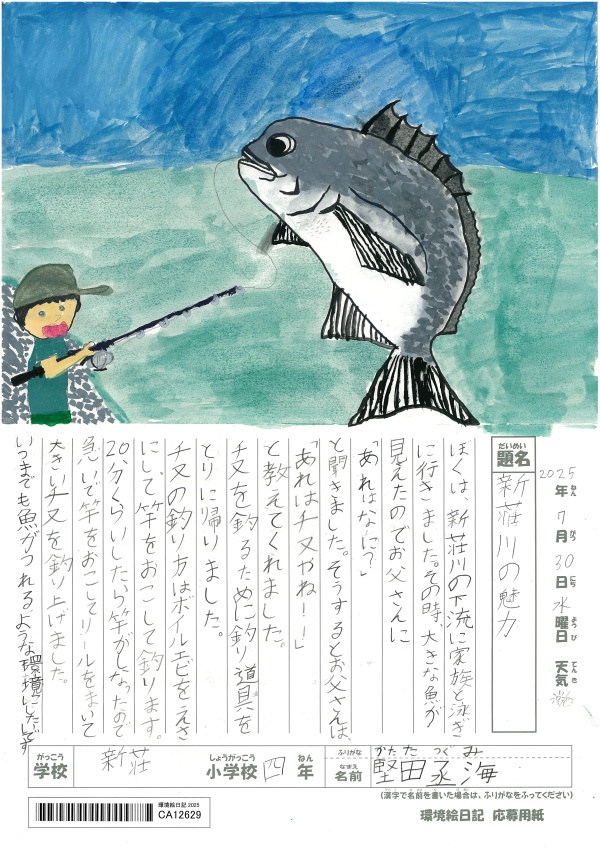 だいめい
題名
新荘川の魅力
2025年 7月 30日 水曜日 天気
ねん がつ にち ようび てんき
ぼくは、新荘川の下流に家族と泳ぎ
に行きました。その時、大きな魚が
見えたのでお父さんに
「あれはなに?」
と聞きました。そうするとお父さんは、
「あれはチヌやね!!」
と教えてくれました。
チヌを釣るために釣り道具を
とりに帰りました。
チヌの釣り方はボイルエビをえさ
にして竿をおこして釣ります。
20分くらいしたら竿がしなったので
急いで竿をおこしてリールをまいて
大きいチヌを釣り上げました。
いつまでも魚がつれるような環境にしたいです
がっこう
学校
新荘
しょうがっこう ねん
小学校 四 年
ふりがな かただ つぐみ
なまえ
名前 堅田丞海
(漢字で名前を書いた場合は、ふりがなをふってください)
環境絵日記 2025
CA12629
環境絵日記 応募用紙